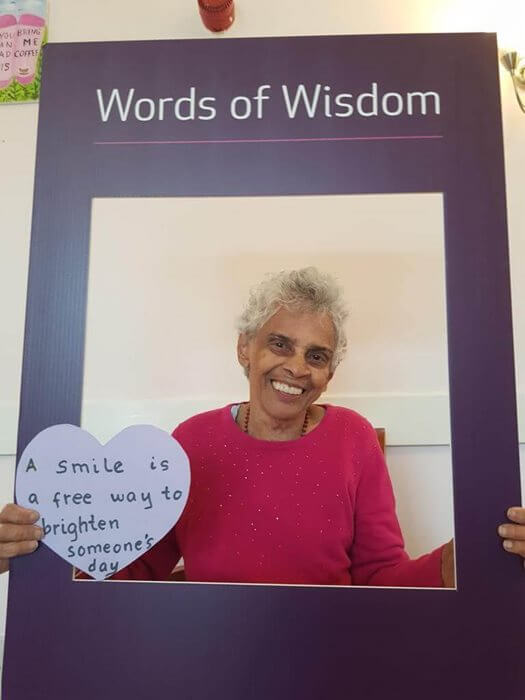 YOU BRING
ME
COFFEE
IS
Words of Wisdom
A smile is
a free way to
brighten
someone's
day